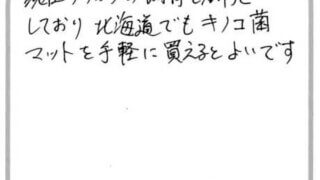 しており 北海道でも キノコ菌
マットを手軽に買えるとよいです